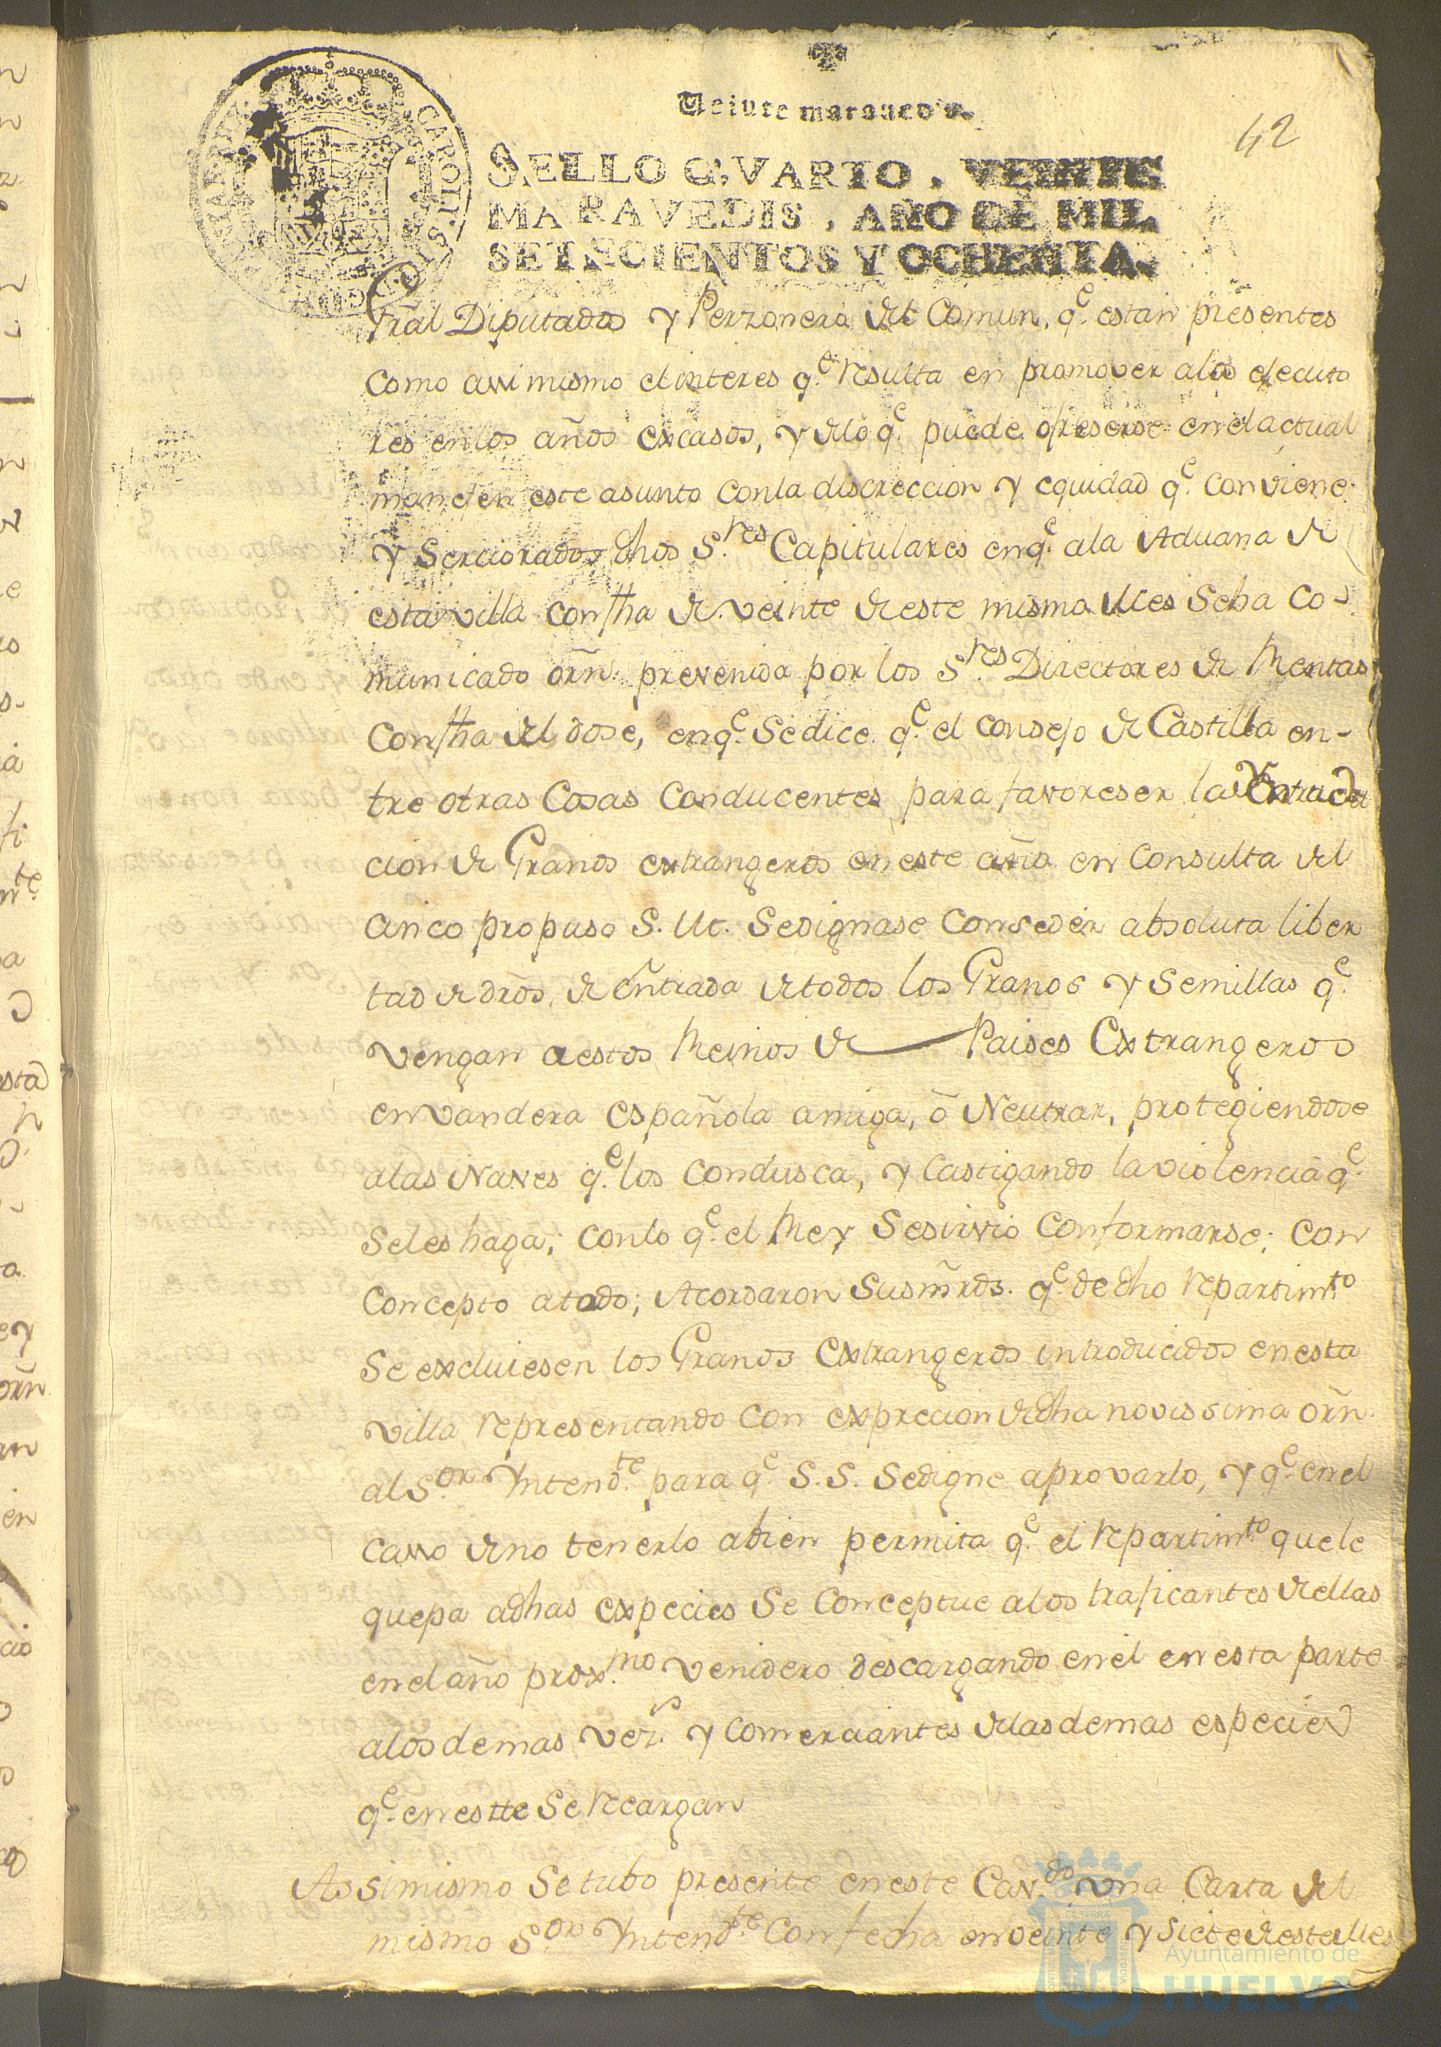 Veinte maravedis.
42
SELLO QVARTO, VEINTE
MARAVEDIS, AÑO DE MIL
SETECIENTOS Y OCHENTA.
Grãl Diputados y Perzonero del Comun, q.e estan presentes
como assimismo el interes q.e resulta en promover alos
res enlos años excasos, y delo q.e puede ofreserse en el actual
manejen este asunto conla discreccion y equidad q.e conviene.
Y Serciorados dhos S.res Capitulares enq.e ala Aduana de
esta villa con fha de veinte de este mismo Mes Seha co-
municado orñ. prevenida por los S.res Directores de Rentas
Con fha del dose, enq.e Sedice q.e el consejo de Castilla en-
tre otras Cosas Conducentes para favoreser la
cion de Granos extrangeros en este año en Consulta del
propuso S. M. Sedignase Conseder absoluta liber
tad de drõs. de Entrada de todos los Granos y Semillas q.e
vengan a estos Reinos de Paises Extrangeros
en vandera española amiga, ó Neutrar, protegiendose
alas Naves q.e los Condusca, y Castigando la violencia q.e
Seles haga; conlo q.e el Rey Sesirvio Conformarse; Con
Concepto atodo; Acordaron Susm̃rds. q.e de dho repartim.to
Se excluiesen los Granos Extrangeros introducidos en esta
villa representando con exprecion de dha novissima orñ.
al S.or Yntend.te para q.e S. S. Sedigne aprovarlo, y q.e en el
Casso de no tenerlo abien permita q.e el repartim.to que le
quepa adhas expecies Se Conceptue alos traficantes de ellas
en el año prox.mo venidero descargando en el en esta parte
alos demas vez.s y Comerciantes delas demas especies
q.e en estte Se recargan
Assimismo Se tubo presente en este Cav.do una Carta del
mismo S.or Yntend.te Con fecha en veinte y siete de este Mes
Ayuntamiento de
HUELVA